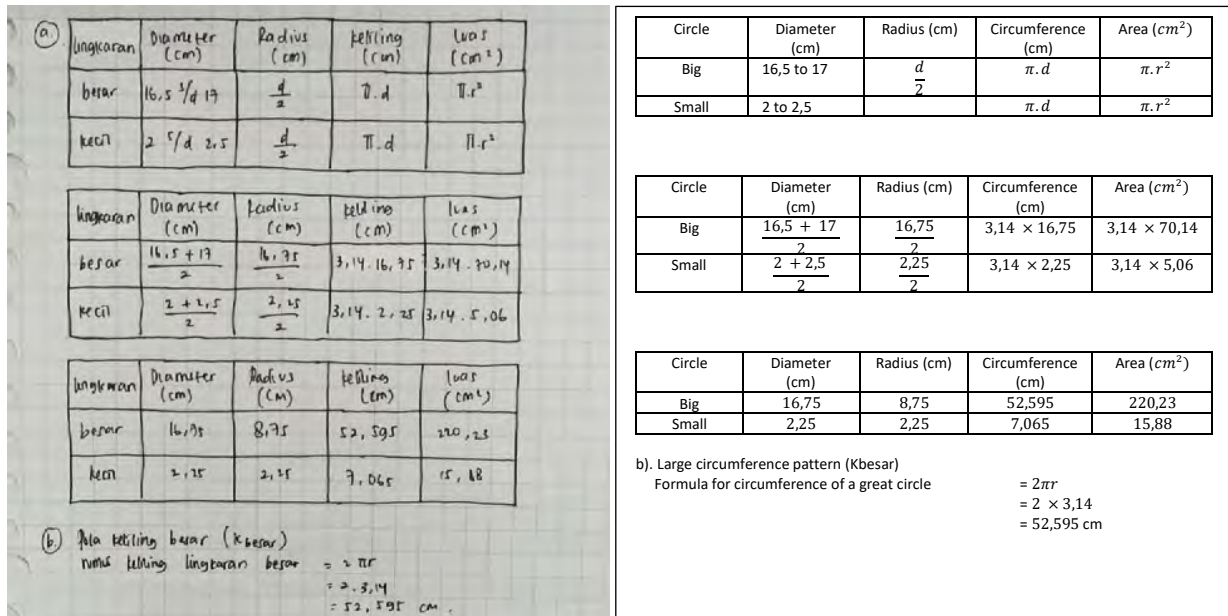 a.
lingkaran | Diameter (cm) | Radius (cm) | keliling (cm) | luas (cm²)
besar | 16,5 s/d 17 | d/2 | π.d | π.r²
kecil | 2 s/d 2,5 | d/2 | π.d | π.r²
lingkaran | Diameter (cm) | Radius (cm) | keliling (cm) | luas (cm²)
besar | 16,5 + 17 / 2 | 16,75 / 2 | 3,14 . 16,75 | 3,14 . 70,14
kecil | 2 + 2,5 / 2 | 2,25 / 2 | 3,14 . 2,25 | 3,14 . 5,06
lingkaran | Diameter (cm) | Radius (cm) | keliling (cm) | luas (cm²)
besar | 16,75 | 8,75 | 52,595 | 220,23
kecil | 2,25 | 2,25 | 7,065 | 15,88
b. Pola keliling besar (K besar)
rumus keliling lingkaran besar = 2 πr
= 2 . 3,14
= 52,595 cm.
Circle | Diameter (cm) | Radius (cm) | Circumference (cm) | Area (cm²)
Big | 16,5 to 17 | d/2 | π.d | π.r²
Small | 2 to 2,5 | | π.d | π.r²
Circle | Diameter (cm) | Radius (cm) | Circumference (cm) | Area (cm²)
Big | 16,5 + 17 / 2 | 16,75 / 2 | 3,14 × 16,75 | 3,14 × 70,14
Small | 2 + 2,5 / 2 | 2,25 / 2 | 3,14 × 2,25 | 3,14 × 5,06
Circle | Diameter (cm) | Radius (cm) | Circumference (cm) | Area (cm²)
Big | 16,75 | 8,75 | 52,595 | 220,23
Small | 2,25 | 2,25 | 7,065 | 15,88
b). Large circumference pattern (Kbesar)
Formula for circumference of a great circle = 2πr
= 2 × 3,14
= 52,595 cm